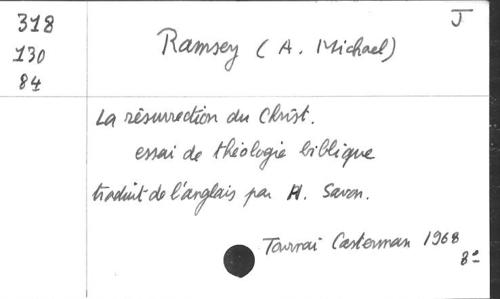 318
130
84
J
Ramsey (A. Michael)
La résurrection du Christ.
essai de théologie biblique
traduit de l'anglais par H. Savon.
Tournai Casterman 1968
8°